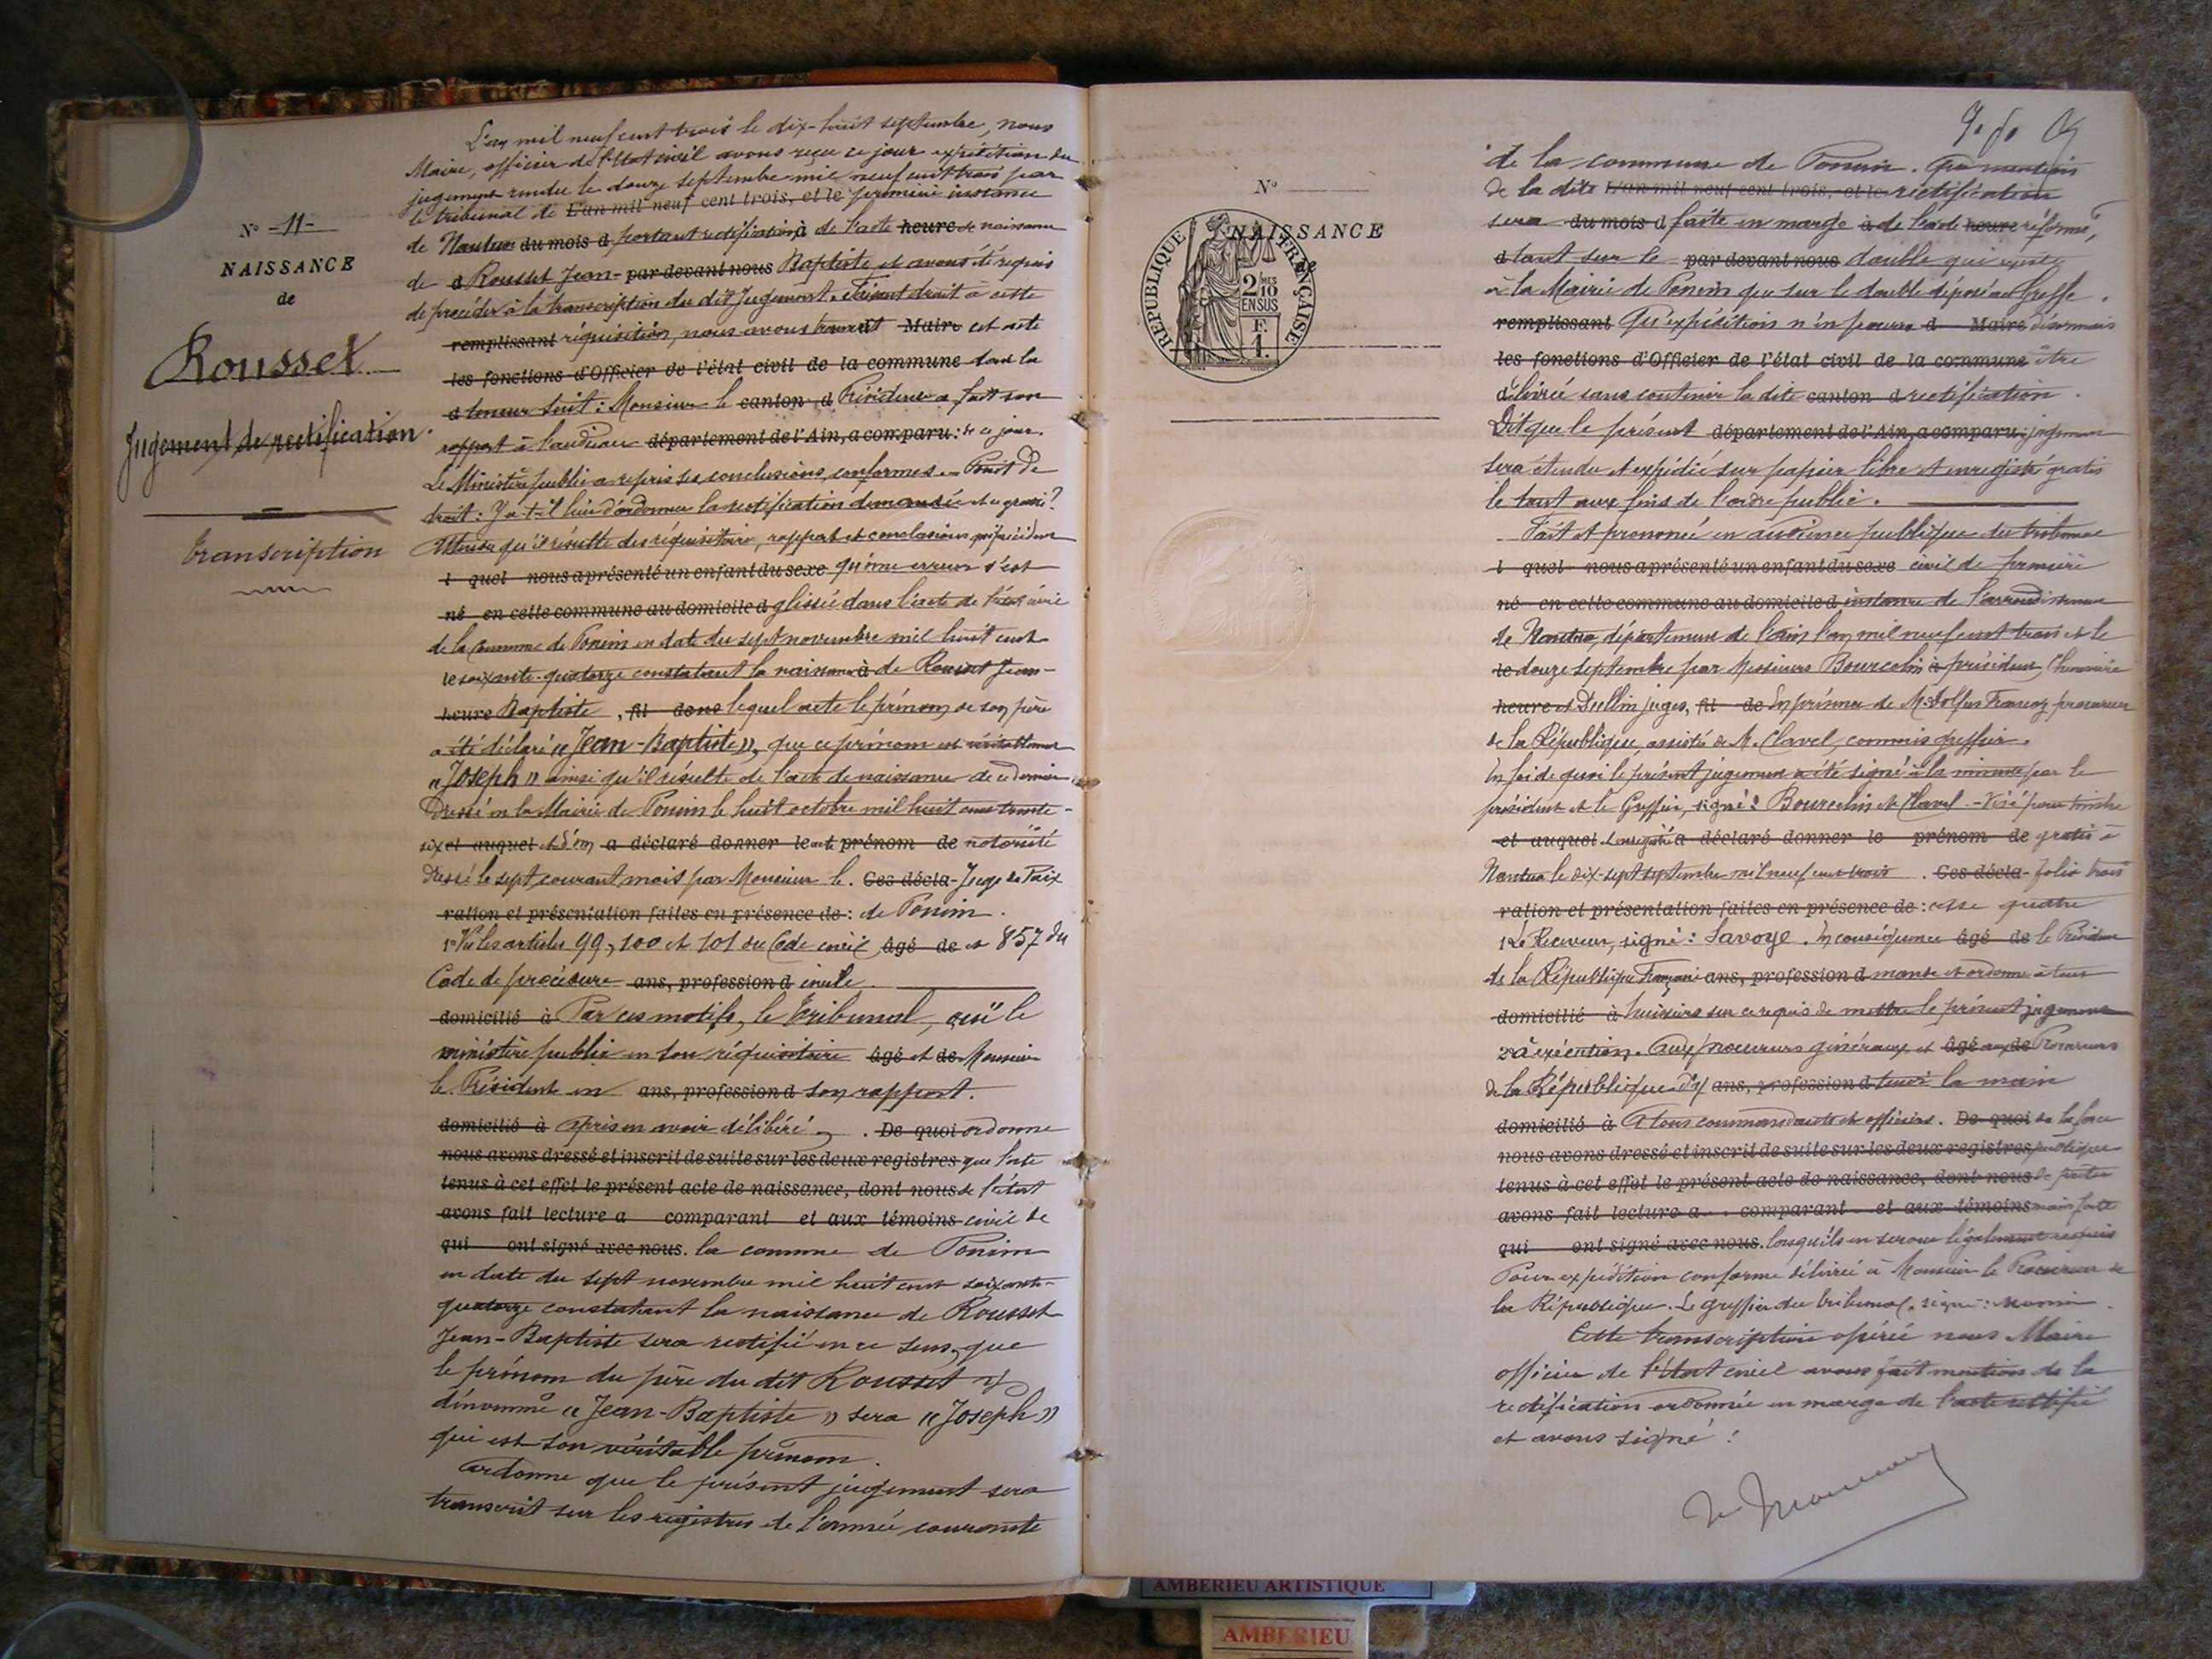 N° -11-
NAISSANCE
de
Rousset
Jugement de rectification.
Transcription
L'an mil neuf cent trois le dix-huit septembre, nous
Maire, officier de l'Etat civil avons reçu ce jour expédition du
jugement rendu le douze septembre mil neuf cent trois par
le tribunal de L'an mil neuf cent trois, et le première instance
de Nantua du mois d portant rectification à de l'acte heure de naissance
de d Rousset Jean- par devant nous Baptiste, et avons été requis
de procéder à la transcription du dit Jugement. Faisant droit à cette
remplissant réquisition, nous avons transcrit Maire cet acte
les fonctions d'Officier de l'état civil de la commune dont la
d teneur suit : Monsieur le canton d Président a fait son
rapport à l'audience département de l'Ain, a comparu : de ce jour.
Le Ministère public a repris ses conclusions conformes. - Point de
droit : Y a-t-il lieu d'ordonner la rectification demandée
Attendu qu'il résulte des réquisitoire, rapport et conclusions
l quel nous a présenté un enfant du sexe qu'une erreur s'est
né en cette commune au domicile d glissée dans l'acte de l'état civil
de la Commune de Poncin en date du sept novembre mil huit cent
le soixante-quatorze constatant la naissance à de Rousset Jean-
heure Baptiste, fil de dans lequel acte le prénom de son père
a été déclaré « Jean-Baptiste », que ce prénom est véritablement
« Joseph » ainsi qu'il résulte de l'acte de naissance de ce dernier
Dressé en la Mairie de Poncin le huit octobre mil huit cent trente-
six et auquel et d'un a déclaré donner le acte prénom de notoriété
dressé le sept courant mois par Monsieur le . Ces décla- Juge de Paix
ration et présentation faites en présence de : de Poncin.
1° Vu les articles 99, 100 et 101 du Code civil âgé de et 857 du
Code de procédure ans, profession d civile.
domicilié à Par ces motifs, le Tribunal, ouï le
ministère public en son réquisitoire âgé et de Monsieur
le Président en ans, profession d son rapport.
domicilié à Après en avoir délibéré, . De quoi ordonne
nous avons dressé et inscrit de suite sur les deux registres que l'acte
tenus à cet effet le présent acte de naissance, dont nous de l'état
avons fait lecture a comparant et aux témoins civil de
qui ont signé avec nous. la commune de Poncin
en date du sept novembre mil huit cent soixante-
quatorze constatant la naissance de Rousset
Jean-Baptiste sera rectifié en ce sens, que
le prénom du père du dit Rousset
dénommé « Jean-Baptiste » sera « Joseph »
qui est son véritable prénom.
Ordonne que le présent jugement sera
transcrit sur les registres de l'année courante
N°
NAISSANCE
de
REPUBLIQUE FRANÇAISE
2 MES 10
EN SUS
F.
1.
de la commune de Poncin. Que mention
de la dite L'an mil neuf cent trois, et le rectification
sera du mois d faite en marge à de l'acte heure réformé,
d tant sur le par devant nous double qui existe
à la Mairie de Poncin que sur le double déposé au Greffe.
remplissant Qu'expédition n'en pourra d Maire désormais
les fonctions d'Officier de l'état civil de la commune être
délivrée sans contenir la dite canton d rectification.
Dit que le présent département de l'Ain, a comparu : jugement
sera étendu et expédié sur papier libre et enregistré gratis
le tout aux fins de l'ordre public.
Fait et prononcé en audience publique du tribunal
l quel nous a présenté un enfant du sexe civil de première
né en cette commune au domicile d instance de l'arrondissement
de Nantua, département de l'Ain l'an mil neuf cent trois et le
le douze septembre par Messieurs Bourcelin à président,
heure et Dullin juges, fil de En présence de M. procureur
de la République, assisté de M. Clavel, commis greffier.
En foi de quoi le présent jugement a été signé à la minute par le
président et le Greffier, signé : Bourcelin et Clavel. - Visé pour timbre
et auquel et enregistré a déclaré donner le prénom de gratis à
Nantua le dix-sept septembre mil neuf cent trois . Ces décla- folio trois
ration et présentation faites en présence de : case quatre
1° Le Receveur, signé : Savoye. En conséquence âgé de le Président
de la République Française ans, profession d mande et ordonne à tous
domicilié à huissiers sur ce requis de mettre le présent jugement
2° à exécution. Aux procureurs généraux et âgé aux de Procureurs
de la République d'y ans, profession d tenir la main
domicilié à A tous commandants et officiers. De quoi de la force
nous avons dressé et inscrit de suite sur les deux registres publique
tenus à cet effet le présent acte de naissance, dont nous de prêter
avons fait lecture a comparant et aux témoins main forte
qui ont signé avec nous. lorsqu'ils en seront légalement requis
Pour expédition conforme délivrée à Monsieur le Procureur de
la République. Le greffier du tribunal, signé :
Cette transcription opérée nous Maire
officier de l'Etat civil avons fait mention de la
rectification ordonnée en marge de l'acte rectifié
et avons signé :
AMBERIEU ARTISTIQUE
AMBERIEU